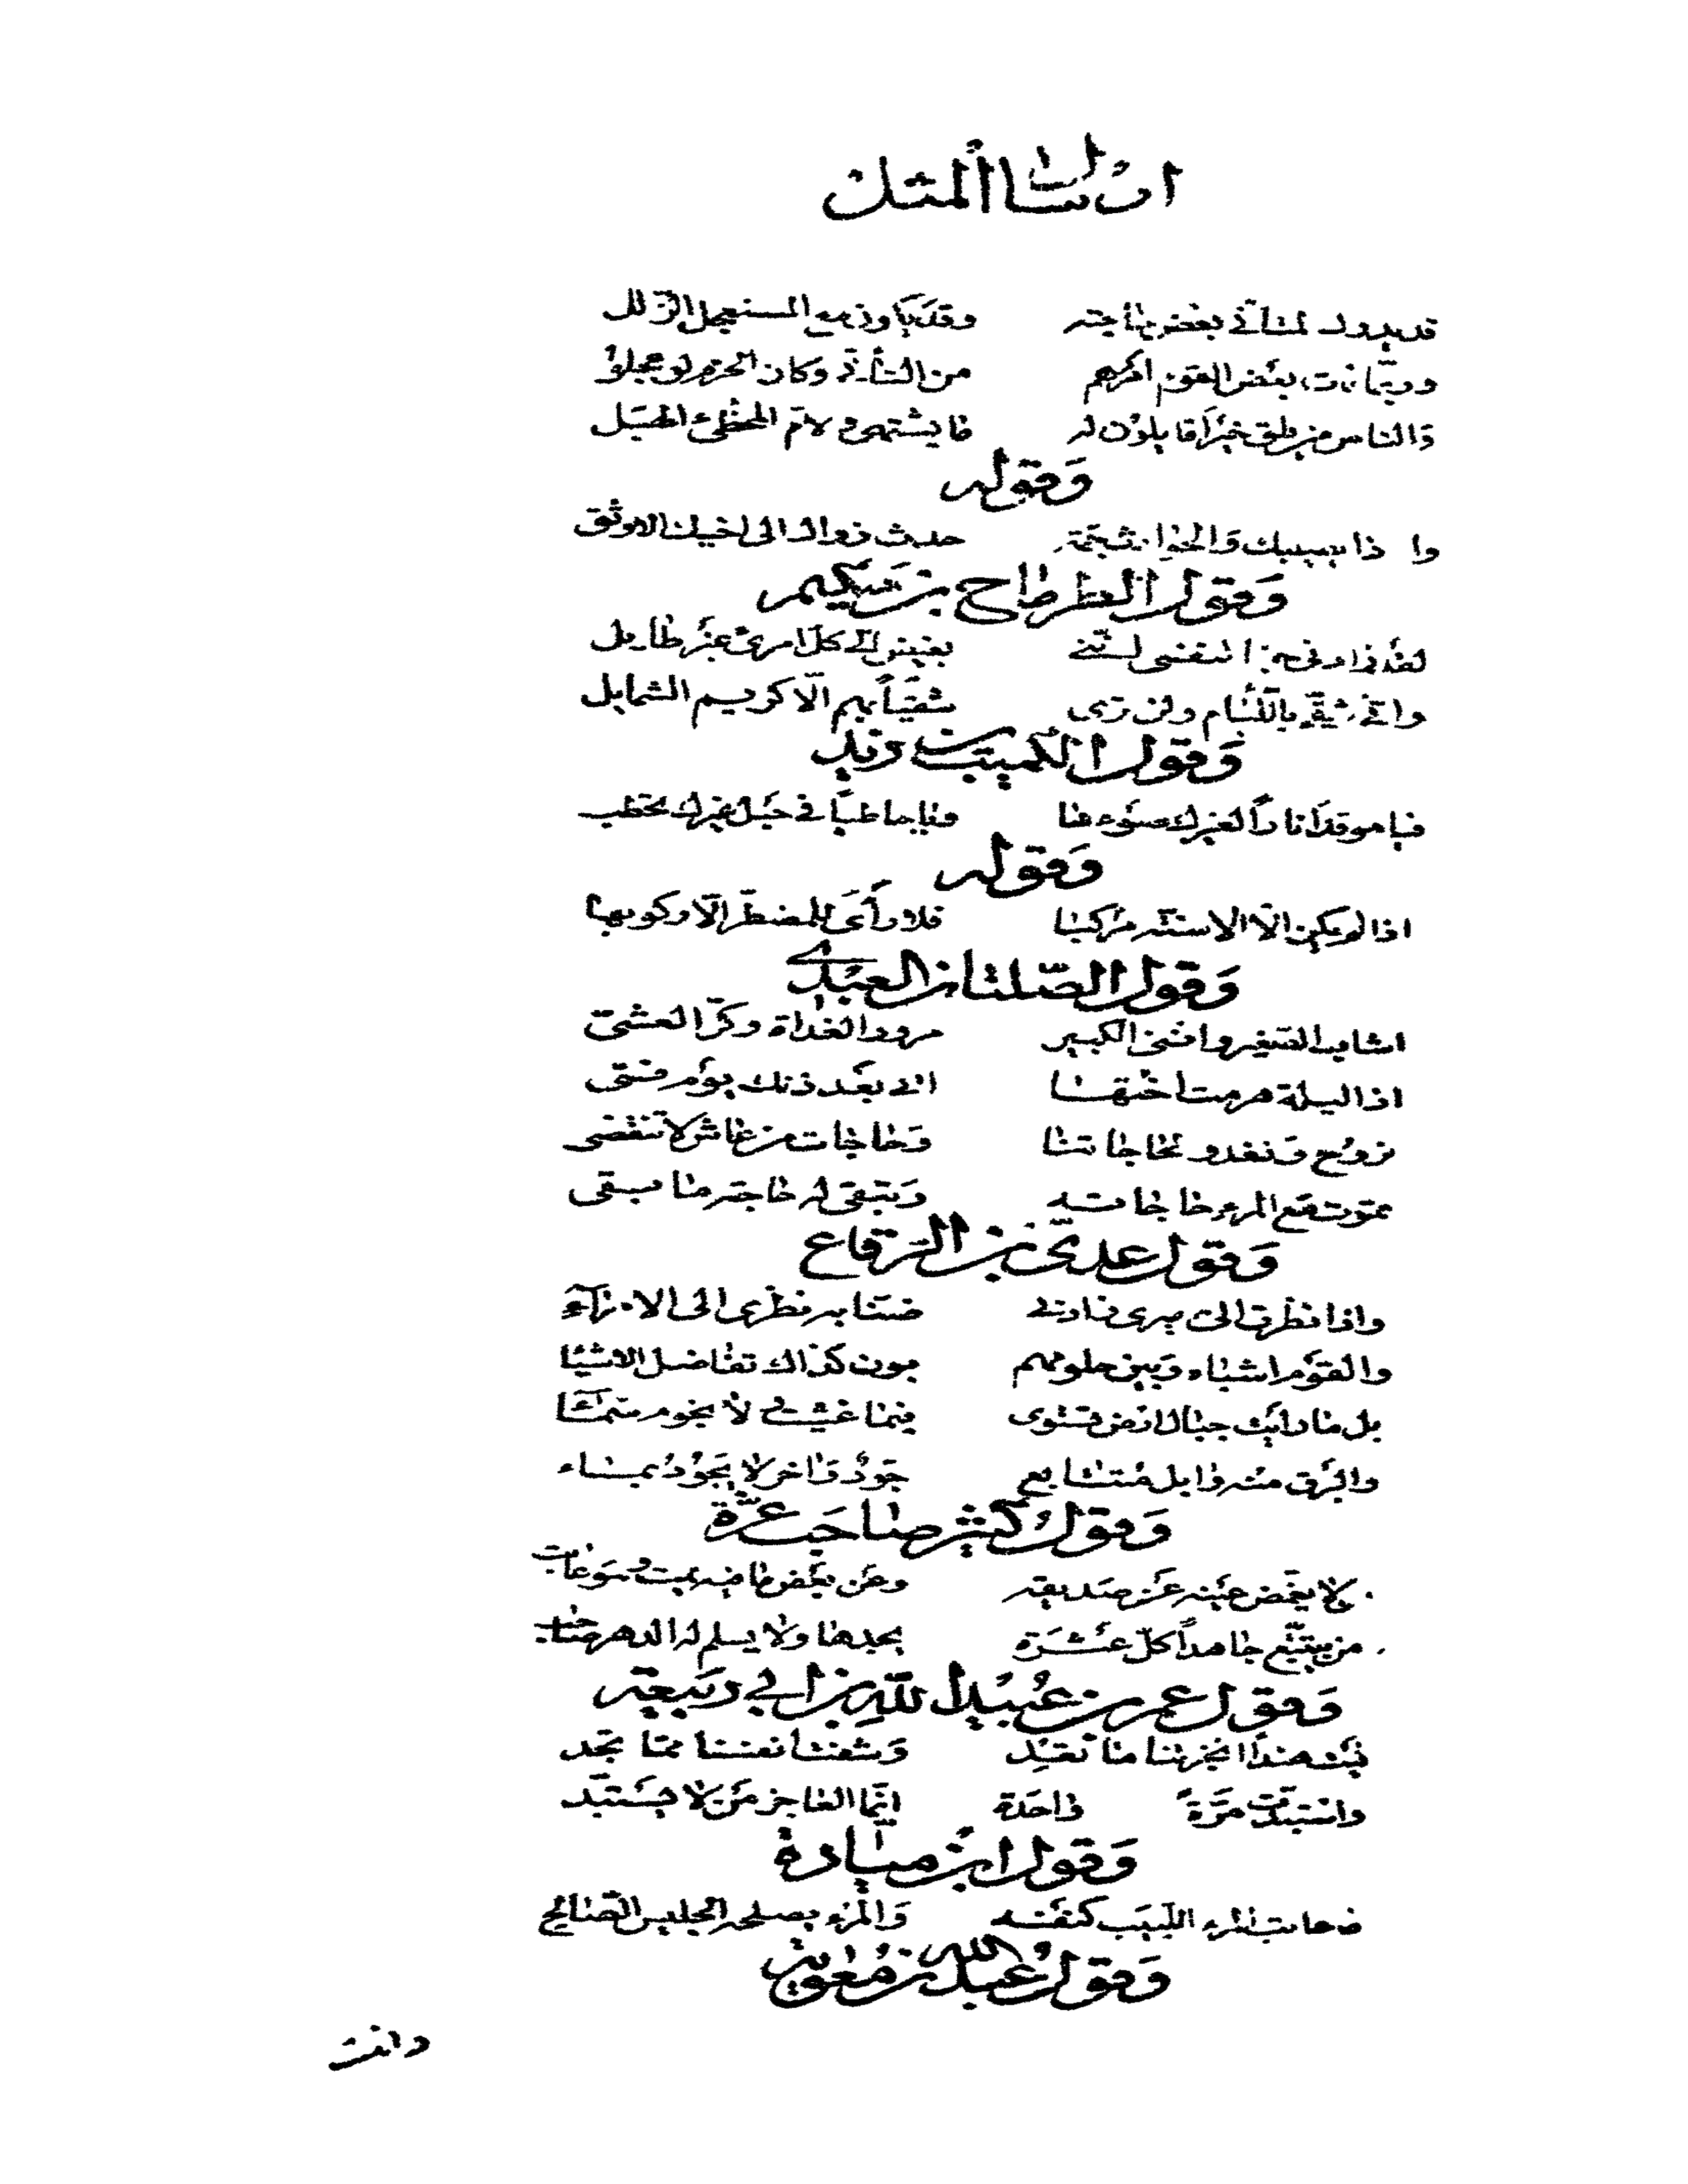 ارسال المثل
قد يدرك المتأني بعض حاجته وقد يكون مع المستعجل الزلل
وربّما فات بعض القوم امرهم من التأني وكان الحزم لو عجلوا
والناس من يلق خيرا قايلون له ما يشتهى ولام المخطئ الهبل
وقوله
واذا يصيبك والحوادث جمّة حدث حداك الى اخيك الاوثق
وقول الطرماح بن حكيم
لقد زادنى حبّا لنفسى انّنى بغيض الى كلّ امرئ غير طايل
وانّى شقىّ باللّئام ولن ترى شقيّا بهم الّا كريم الشمايل
وقول الكميت بن زيد
فيا موقدا نارا لغيرك ضوءها ويا حاطبا فى حبل غيرك تحطب
وقوله
اذا لم يكن الّا الاسنّة مركبا فلا رأى للمضطرّ الّا ركوبها
وقول الصّلتان العبدى
اشاب الصّغير وافنى الكبير مرور الغداة وكرّ العشىّ
اذا ليلة هرمت اختها اتى بعد ذلك يوم فتى
نروح ونغدو لحاجاتنا وحاجات من عاش لا تنقضى
تموت مع المرء حاجاته وتبقى له حاجة ما بقى
وقول عدىّ بن الرّقاع
واذا نظرت الى اميرى زادنى ضنّا به نظرى الى الامراء
والقوم اشباه وبين حلومهم بون كذاك تفاضل الاشيا
بل ما رأيت جبال ارض تستوى فيما غشيت ولا نجوم سماء
والبرق منه وابل متتابع جود واخر لا يجود بماء
وقول كثيّر صاحب عزّة
ومن لا يغمّض عينه عن صديقه وعن بعض ما فيه يمت وهو عاتب
ومن يتتبّع جاهدا كلّ عثرة يجدها ولا يسلم له الدهر صاحب
وقول عمر بن عبيد اللّه بن ابى ربيعة
ليت هندا انجزتنا ما تعد وشفت انفسنا ممّا تجد
واستبدّت مرّة واحدة انّما العاجز من لا يستبدّ
وقول ابن ميّادة
ما عاتب المرء اللّبيب كنفسه والمرء يصلحه الجليس الصّالح
وقول عبد الله بن معوية
وانت